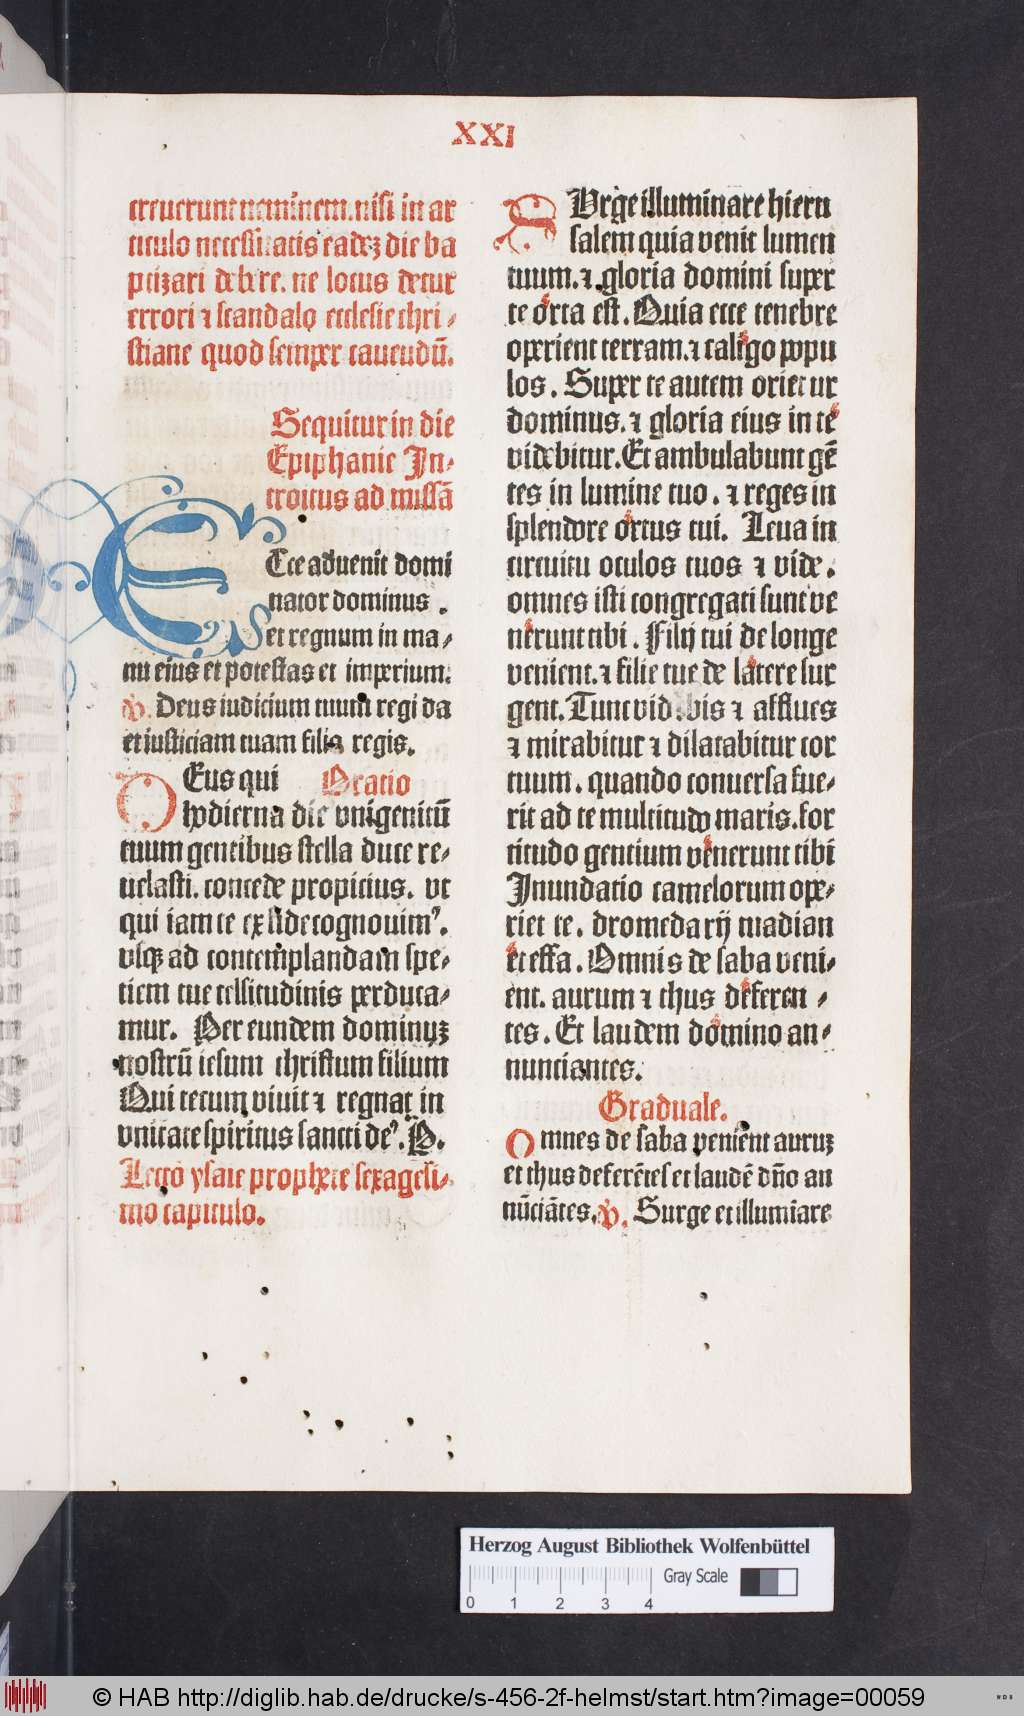 XXI
creuerunt neminem. nisi in ar
ticulo necessitatis eadeꝫ die ba
ptizari debere. ne locus detur
errori ⁊ scandalo ecclesie chri⸗
stiane quod semper cauendū.
Sequitur in die
Epiphanie In⸗
troitus ad missā
ECce aduenit domi
nator dominus .
et regnum in ma⸗
nu eius et potestas et imperium:
℣. Deus iudicium tuum regi da
et iusticiam tuam filio regis.
DEus qui Oratio
hodierna die vnigenitū
tuum gentibus stella duce re⸗
uelasti. concede propicius. vt
qui iam te ex fide cognouimꝰ.
vsqꝫ ad contemplandam spe⸗
ciem tue celsitudinis perduca⸗
mur. Per eundem dominuꝫ
nostrū iesum christum filium
Qui tecum viuit ⁊ regnat in
vnitate spiritus sancti deꝰ. P.
Lectio ysaie prophete sexagesi⸗
mo capitulo.
SUrge illuminare hieru
salem quia venit lumen
tuum. ⁊ gloria domini super
te orta est. Quia ecce tenebre
operient terram. ⁊ caligo popu
los. Super te autem orietur
dominus. ⁊ gloria eius in te
videbitur. Et ambulabunt gē
tes in lumine tuo. ⁊ reges in
splendore ortus tui. Leua in
circuitu oculos tuos ⁊ vide.
omnes isti congregati sunt ve
nerunt tibi. Filij tui de longe
venient. ⁊ filie tue de latere sur
gent. Tunc videbis ⁊ afflues
⁊ mirabitur ⁊ dilatabitur cor
tuum. quando conuersa fue⸗
rit ad te multitudo maris. for
titudo gentium venerunt tibi
Inundatio camelorum ope⸗
riet te. dromedarij madian
et effa. Omnis de saba veni⸗
ent. aurum ⁊ thus deferen⸗
tes. Et laudem domino an⸗
nunciantes.
Graduale.
Omnes de saba venient auruꝫ
et thus deferētes et laudē dn̄o an
nūciātes. ℣. Surge et illumiare
Herzog August Bibliothek Wolfenbüttel
Gray Scale
0 1 2 3 4
© HAB http://diglib.hab.de/drucke/s-456-2f-helmst/start.htm?image=00059